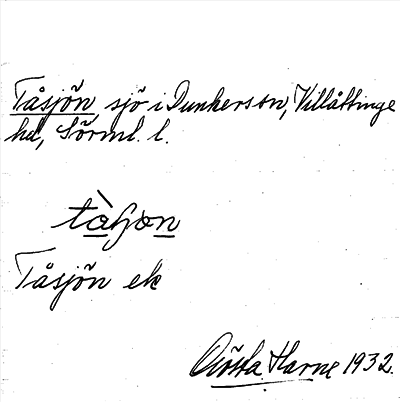 Tåsjön sjö i Dunkers sn, Villåttinge
hd, Sörml. l.
tå̀ʃon
Tåsjön ek
Gösta Harne 1932.